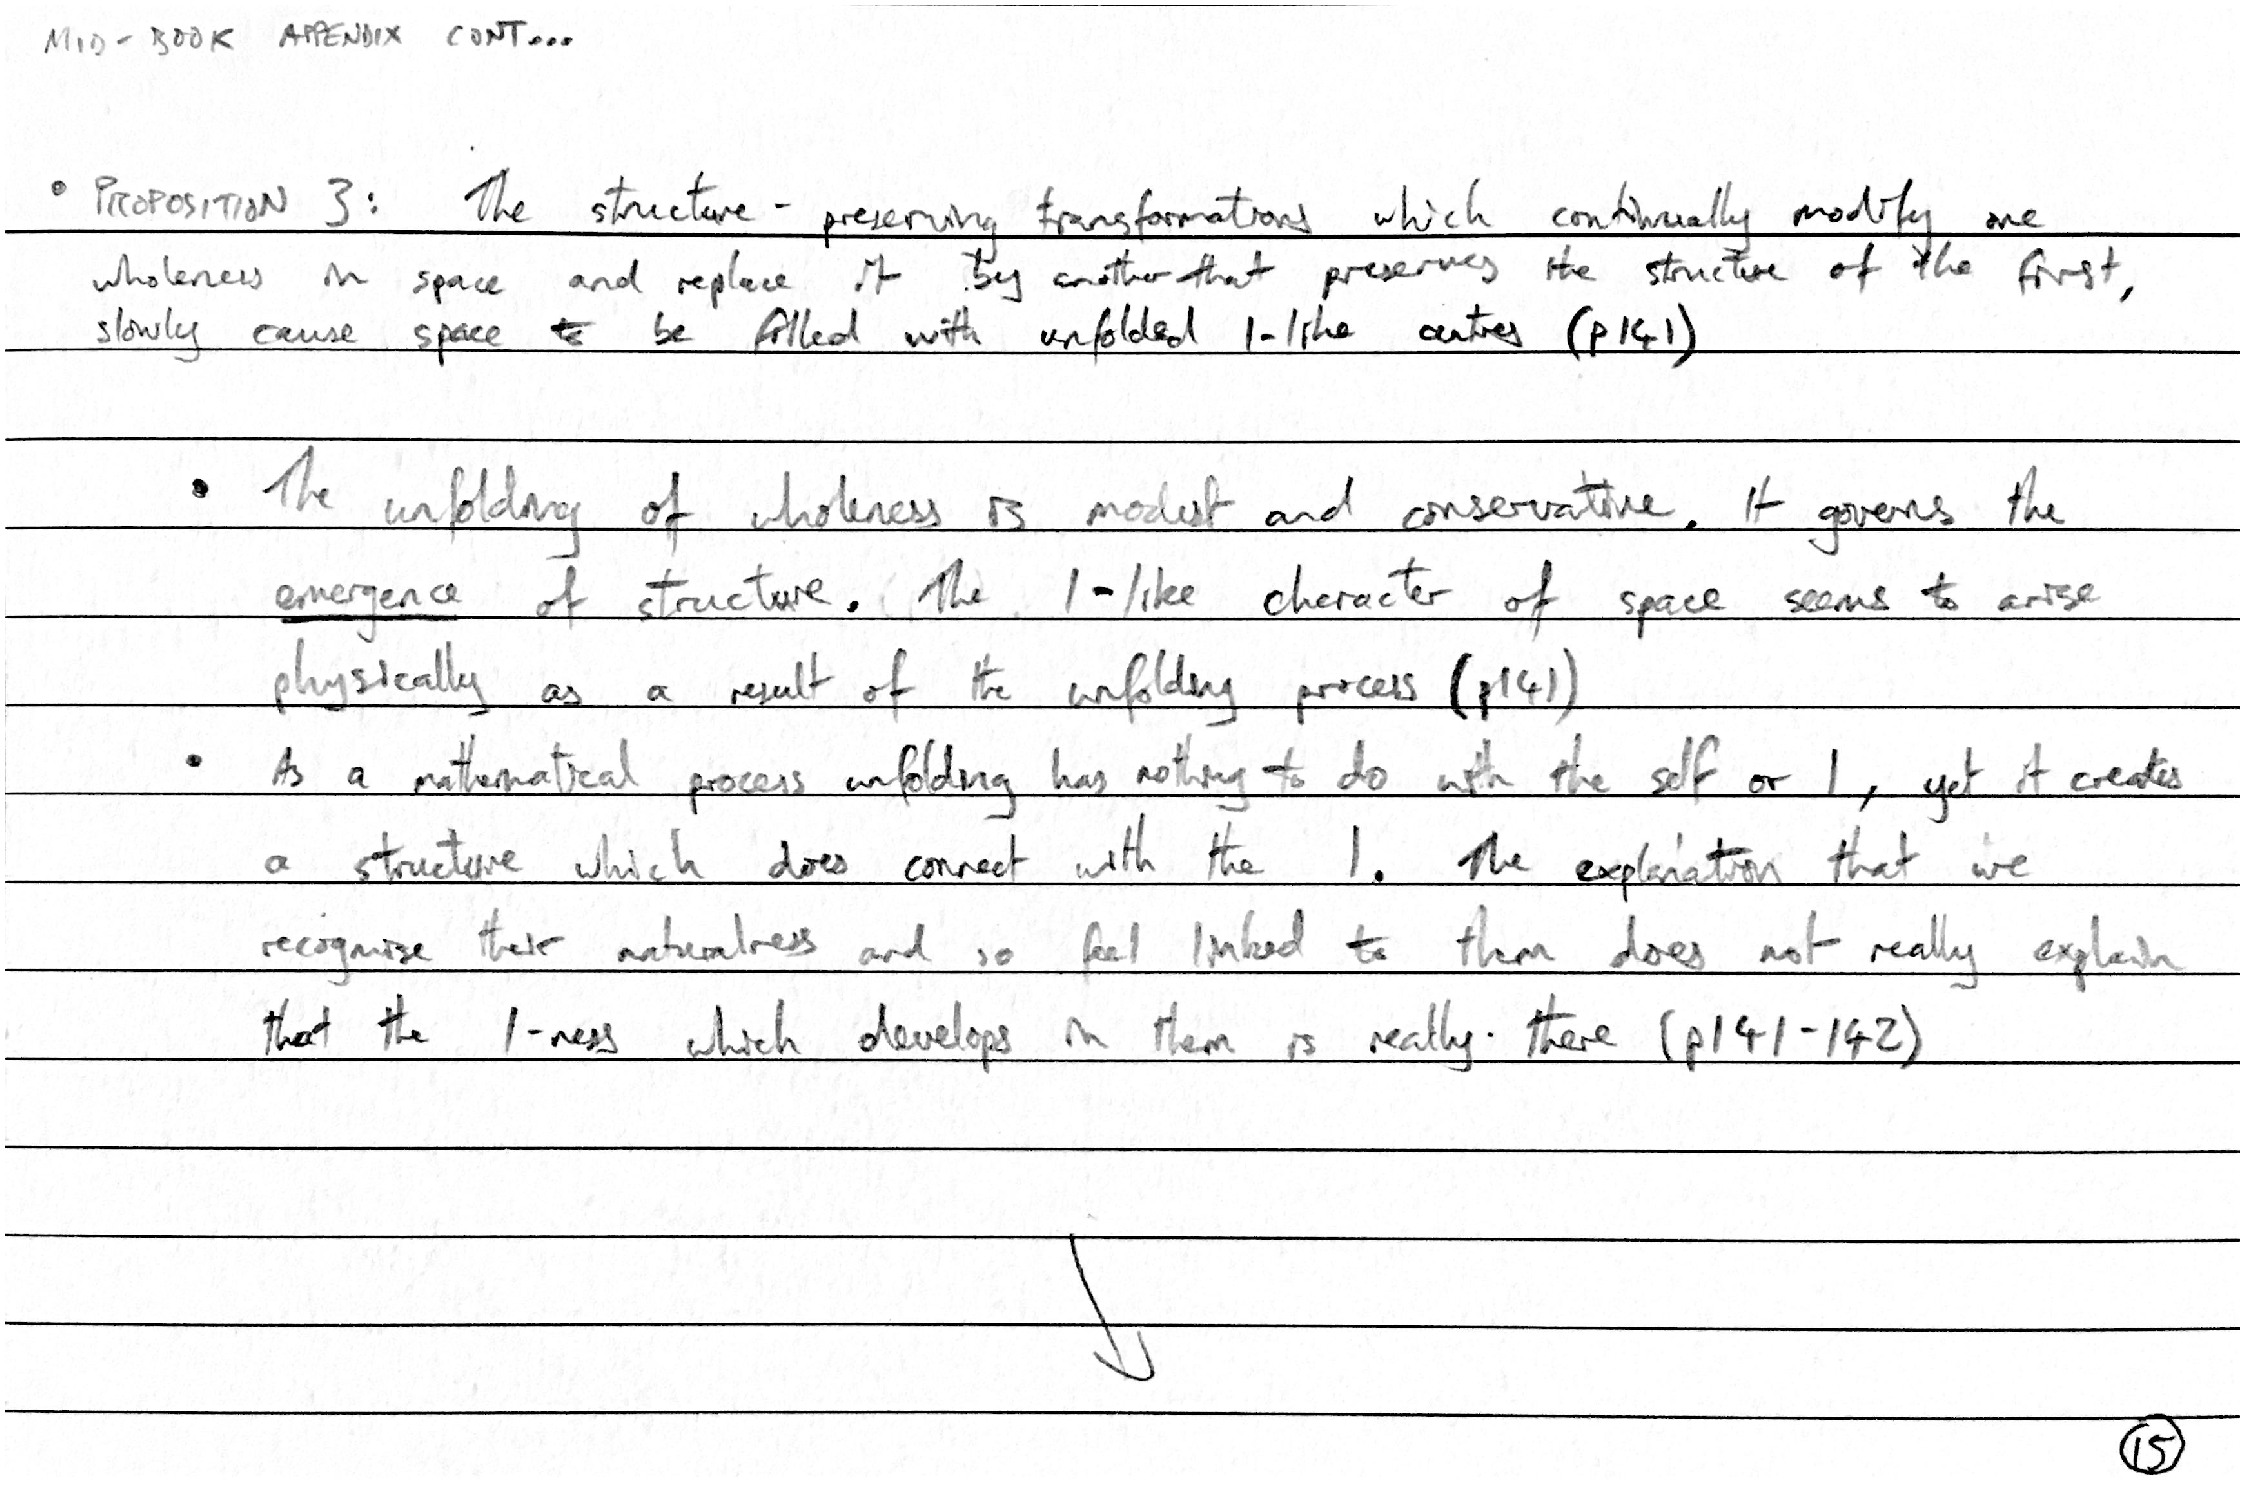 MID-BOOK APPENDIX CONT...
• PROPOSITION 3: The structure-preserving transformations which continually modify one
wholeness in space and replace it by another that preserves the structure of the first,
slowly cause space to be filled with unfolded I-like centres (p141)
• The unfolding of wholeness is modest and conservative. It governs the
emergence of structure. The I-like character of space seems to arise
physically as a result of the unfolding process (p141)
• As a mathematical process unfolding has nothing to do with the self or I, yet it creates
a structure which does connect with the I. The explanation that we
recognise their naturalness and so feel linked to them does not really explain
that the I-ness which develops in them is really there (p141-142)
15